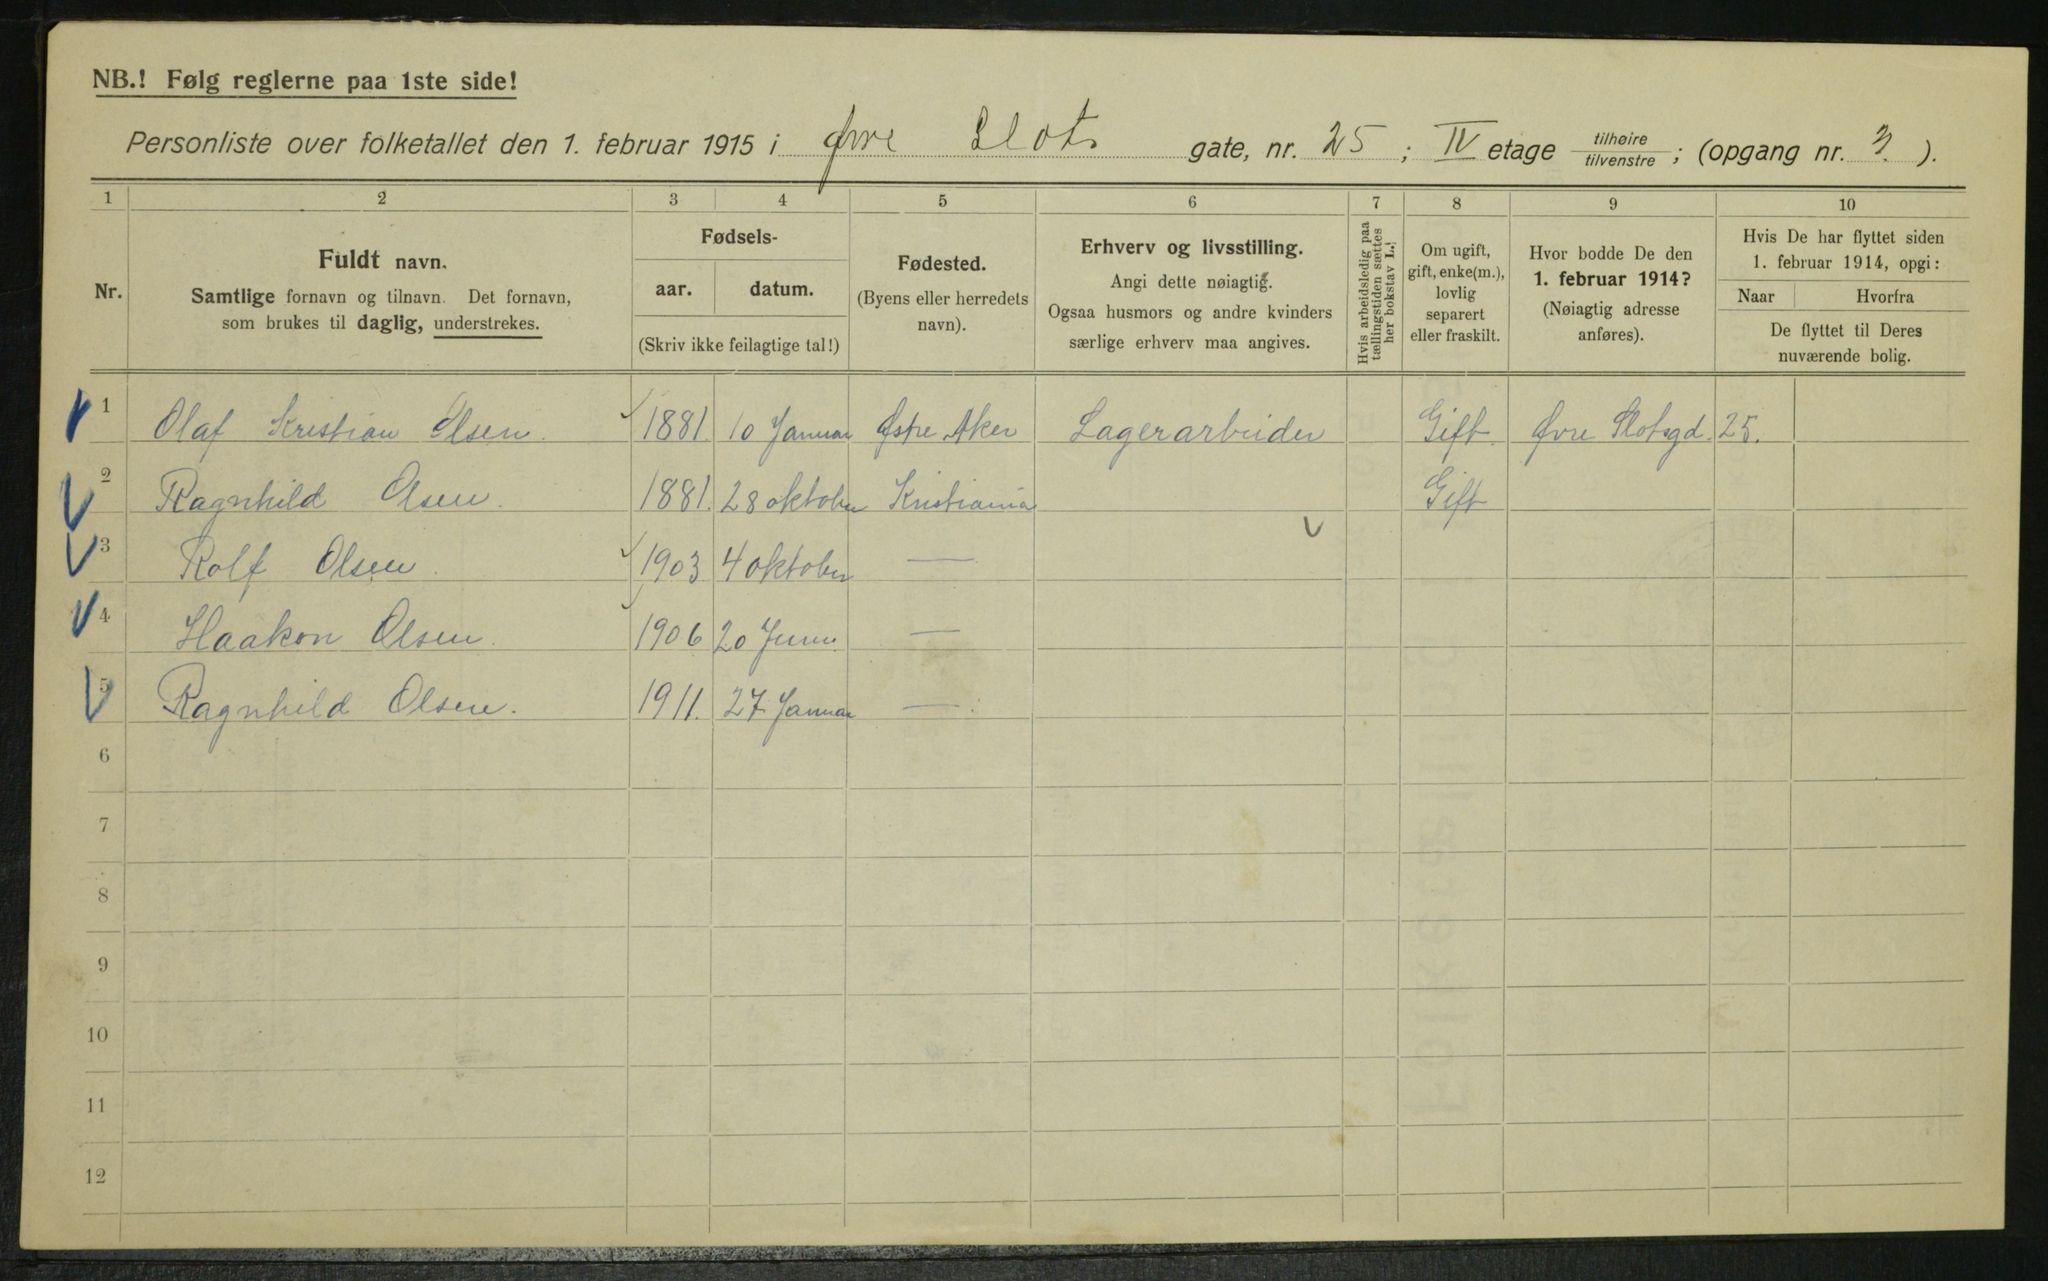 NB.! Følg reglerne paa 1ste side!
Personliste over folketallet den 1. februar 1915 i Øvre Slots gate, nr. 25; IV etage tilhøire / tilvenstre; (opgang nr. 3.).
1 2 3 4 5 6 7 8 9 10
Nr.
Fuldt navn.
Samtlige fornavn og tilnavn. Det fornavn,
som brukes til daglig, understrekes.
Fødsels-
aar. datum.
(Skriv ikke feilagtige tal!)
Fødested.
(Byens eller herredets
navn).
Erhverv og livsstilling.
Angi dette nøiagtig.
Ogsaa husmors og andre kvinders
særlige erhverv maa angives.
Hvis arbeidsledig paa
tællingstiden sættes
her bokstav L.!
Om ugift,
gift, enke(m.),
lovlig
separert
eller fraskilt.
Hvor bodde De den
1. februar 1914?
(Nøiagtig adresse
anføres).
Hvis De har flyttet siden
1. februar 1914, opgi:
Naar Hvorfra
De flyttet til Deres
nuværende bolig.
1 Olaf Kristian Olsen. 1881. 10 Januar Østre Aker Lagerarbeider Gift. Øvre Slotsgd. 25.
2 Ragnhild Olsen. 1881. 28 oktober Kristiania Gift
3 Rolf Olsen. 1903 4 oktober —
4 Haakon Olsen. 1906 20 Juni. —
5 Ragnhild Olsen. 1911. 27 Januar —
6
7
8
9
10
11
12